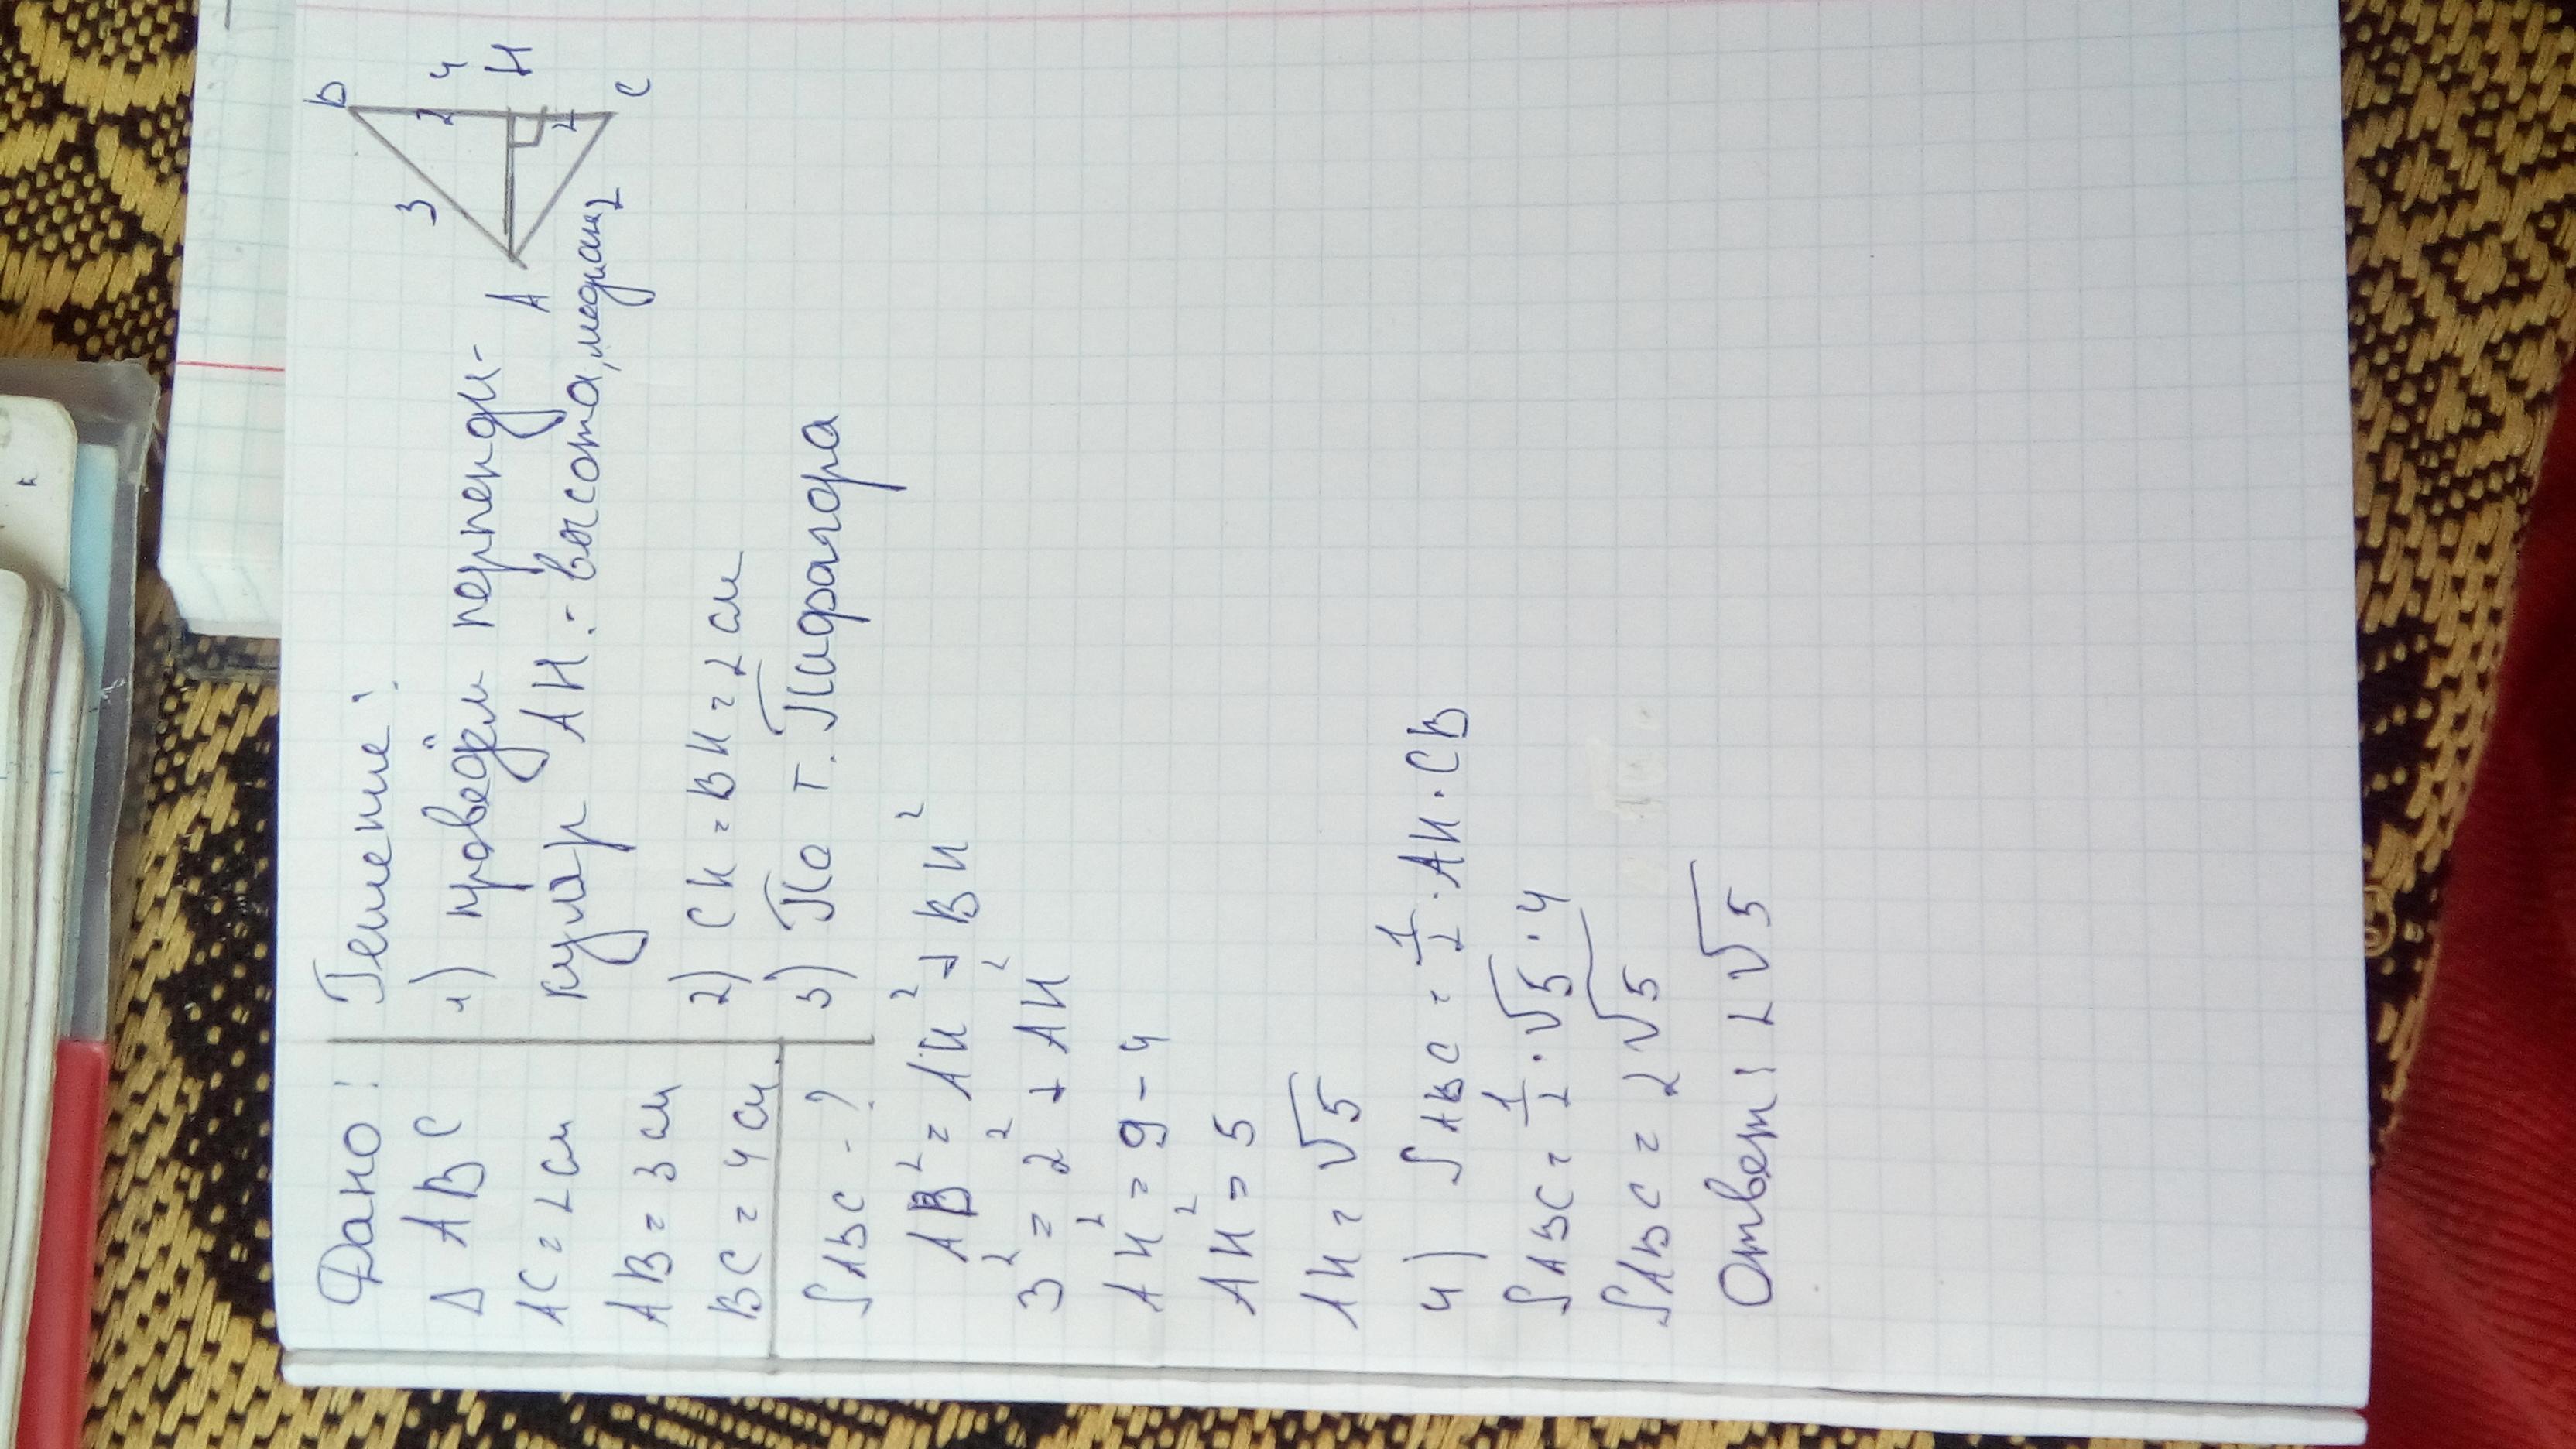 Дано: Решение:
Δ ABC
AC = 2 см
AB = 3 см
BC = 4 см.
SABC - ?
1) проведём перпенди-
куляр AH - высота, медиана
2) CH = BH = 2 см
3) По т. Пифагора
B
3
2
4
H
2
C
A
2
AB² = AH² + BH²
3² = 2² + AH²
AH² = 9 - 4
AH² = 5
AH = √5
4) SABC = 1/2 · AH · CB
SABC = 1/2 · √5 · 4
SABC = 2√5
Ответ: 2√5